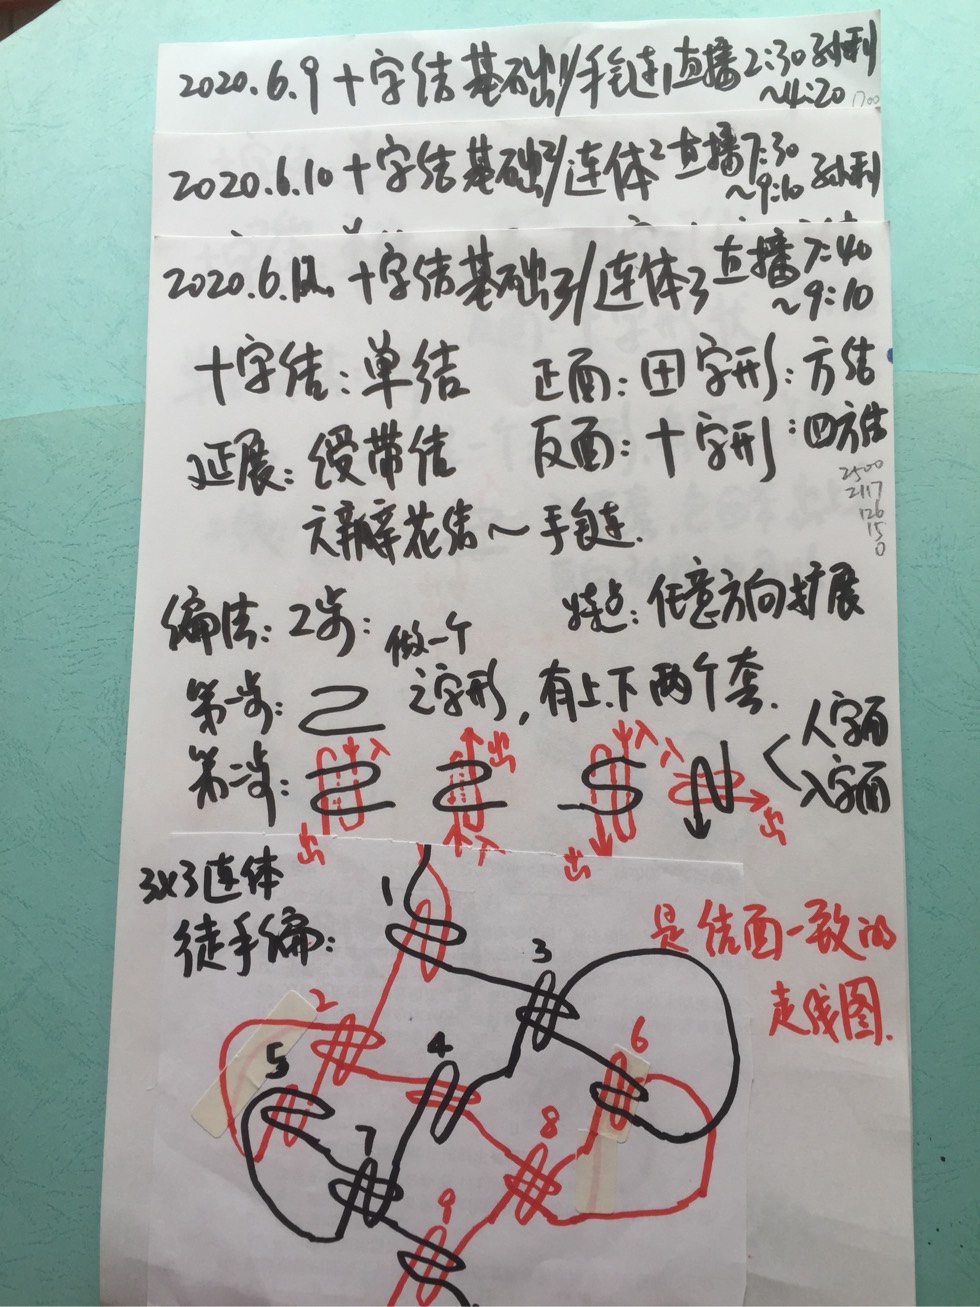 2020.6.9 十字结基础1/手链1直播2:30
~4:20
1700
2020.6.10 十字结基础2/连体2直播7:30
~9:10
2020.6.12. 十字结基础3/连体3直播7:40
~9:10
十字结:单结 正面:田字形:方结
延展:绶带结 反面:十字形:四方结
2500
2117
126
15
0
六瓣花结~手链.
编法:2步: 特点:任意方向扩展
第一步: 做一个之字形,有上.下两个套.
第二步: 入 出 出 入 入 出 入 出 人字面
入字面
3x3连体
徒手编:
是结面一致的
走线图.
1
2
3
4
5
6
7
8
9